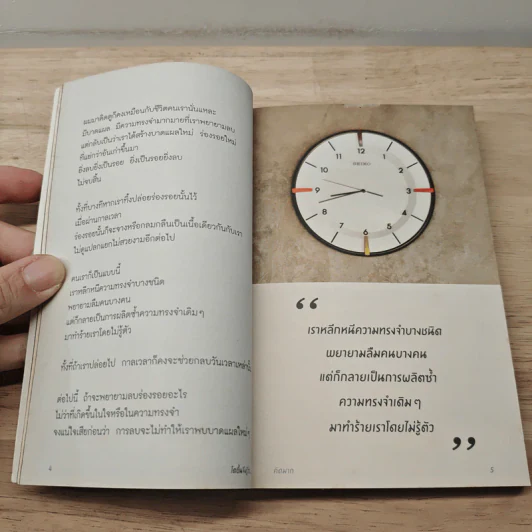 ผมมาคิดดูก็คงเหมือนกับชีวิตคนเรานั่นแหละ
มีบาดแผล มีความทรงจำมากมายที่เราพยายามลบ
แต่กลับเป็นว่าเราได้สร้างบาดแผลใหม่ ร่องรอยใหม่
ที่แย่กว่าอันเก่าขึ้นมา
ยิ่งลบยิ่งเป็นรอย ยิ่งเป็นรอยยิ่งลบ
ไม่จบสิ้น
ทั้งที่บางทีหากเราทิ้งปล่อยร่องรอยนั้นไว้
เมื่อผ่านกาลเวลา
ร่องรอยนั้นก็จะจางหรือกลมกลืนเป็นเนื้อเดียวกันกับเรา
ไม่ดูแปลกแยกไม่สวยงามอีกต่อไป
คนเราก็เป็นแบบนี้
เราหลีกหนีความทรงจำบางชนิด
พยายามลืมคนบางคน
แต่ก็กลายเป็นการผลิตซ้ำความทรงจำเดิมๆ
มาทำร้ายเราโดยไม่รู้ตัว
ทั้งที่ถ้าเราปล่อยไป กาลเวลาก็คงจะช่วยกลบวันเวลาเหล่านั้น
ต่อไปนี้ ถ้าจะพยายามลบร่องรอยอะไร
ไม่ว่าที่เกิดขึ้นในใจหรือในความทรงจำ
จงแน่ใจเสียก่อนว่า การลบจะไม่ทำให้เราพบบาดแผลใหม่ๆ
4
12
11
1
10
2
SEIKO
9
3
8
4
7
5
6
“
เราหลีกหนีความทรงจำบางชนิด
พยายามลืมคนบางคน
แต่ก็กลายเป็นการผลิตซ้ำ
ความทรงจำเดิมๆ
มาทำร้ายเราโดยไม่รู้ตัว
”
5